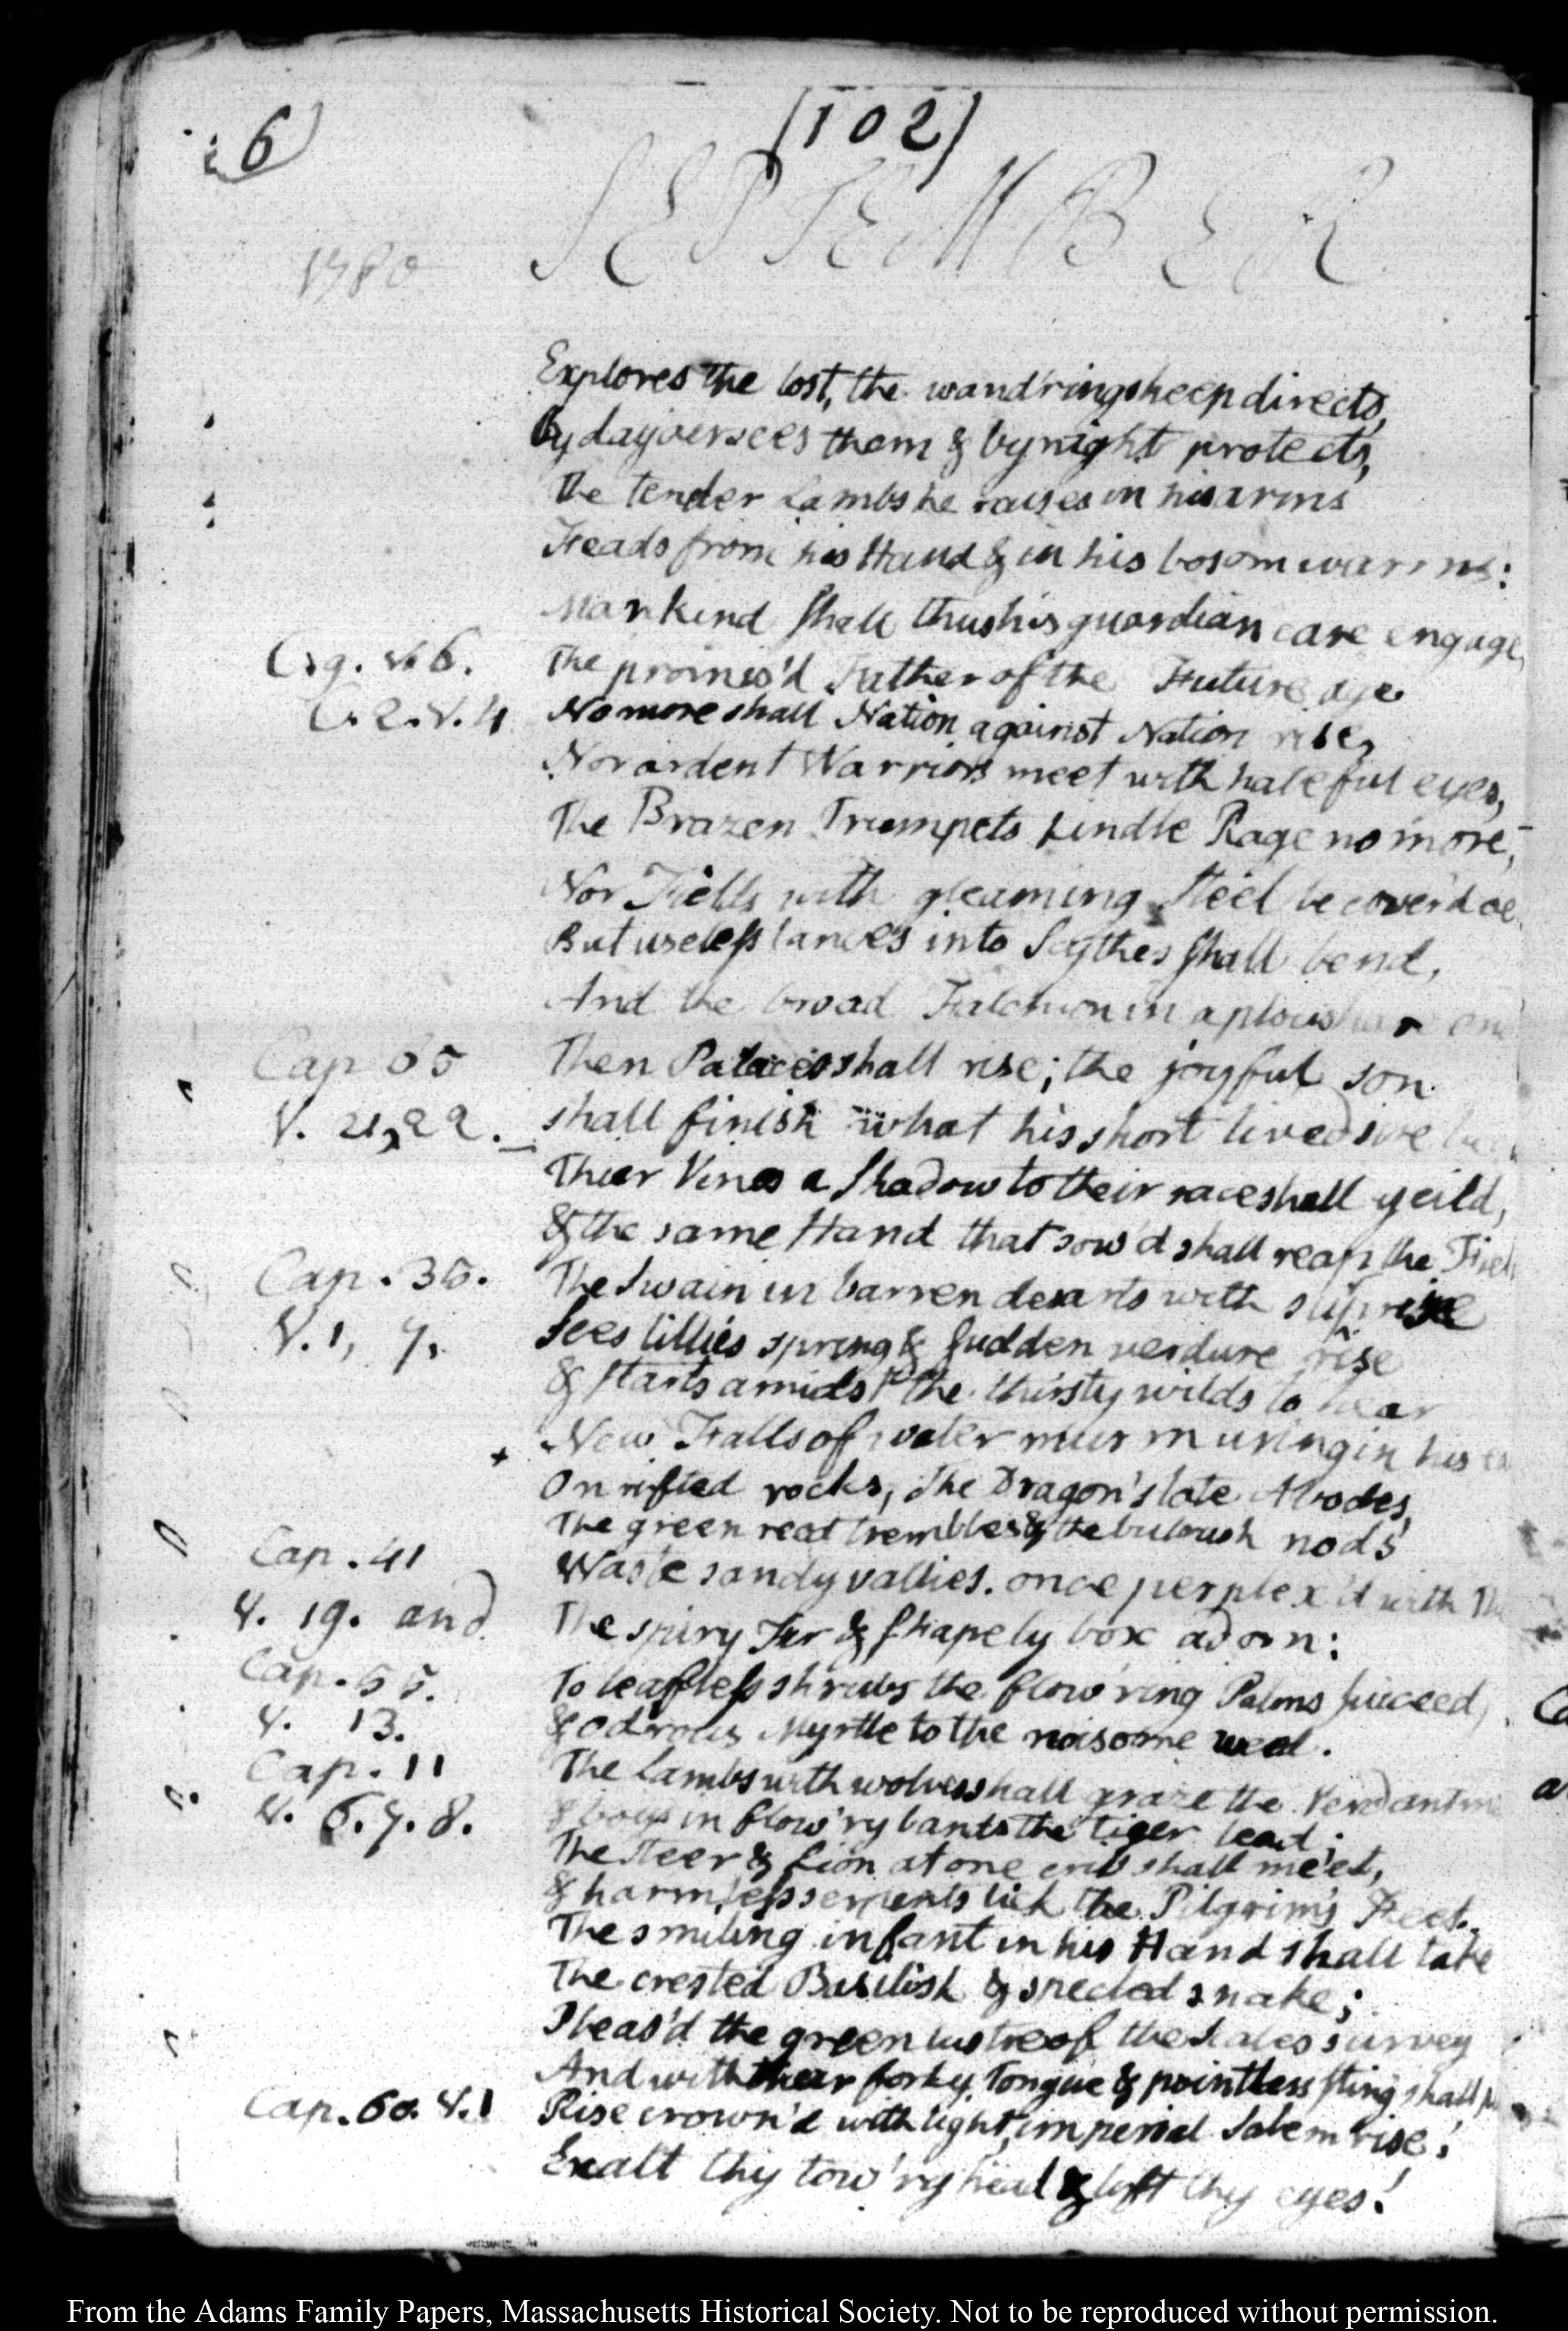 6)
(102)
SEPTEMBER
1780
Explores the lost, the wand'ring sheep directs,
by day oversees them & by night protects,
The tender Lambs he raises in his arms
Feads from his Hand & in his bosom warms:
Mankind shall thus his guardian care engage,
C. 9. V. 6. The promis'd Father of the Future age
C. 2. V. 4 No more shall Nation against Nation rise,
Nor ardent Warriors meet with hateful eyes,
The Brazen Trumpets kindle Rage no more,
Nor Fields with gleaming Steel be cover'd oe
But useless lances into Scythes shall bend,
And the broad Falchion in a ploushar en
Cap 65 Then Palaces shall rise; the joyful son
V. 21, 22. shall finish what his short lived sire
Thier Vines a Shadow to their race shall yeild,
& the same Hand that sow'd shall reap the Fiel
Cap. 35. The Swain in barren desarts with suprise
V. 1, 7. Sees lillies spring & sudden verdure rise
& starts amidst the thirsty wilds to hear
+ New Falls of water murmuring in his ea
On rifted rocks, the Dragon's late Abodes,
The green reed trembles & the bulrush nods
Cap. 41 Waste sandy vallies. once perplex'd with Th
V. 19. and The spiry Fir & shapely box adorn:
Cap. 55. To leafless shrubs the flow'ring Palms succeed,
V. 13. & odorous Myrtle to the noisome weed.
Cap. 11 The Lambs with wolves shall graze the Verdant me
V. 6. 7. 8. & boys in flow'ry bands the tiger lead;
The Steer & Lion at one crib shall meet,
& harmless serpents lick the Pilgrim's Feet.
The smiling infant in his Hand shall take
The crested Basilisk & specled snake;
Pleas'd the green lustre of the Scales survey
And with their forky Tongue & pointless sting shall
Cap. 60. V. 1 Rise crown'd with light, imperial Salem rise!
Exalt thy tow'ry head & lift thy eyes!
From the Adams Family Papers, Massachusetts Historical Society. Not to be reproduced without permission.